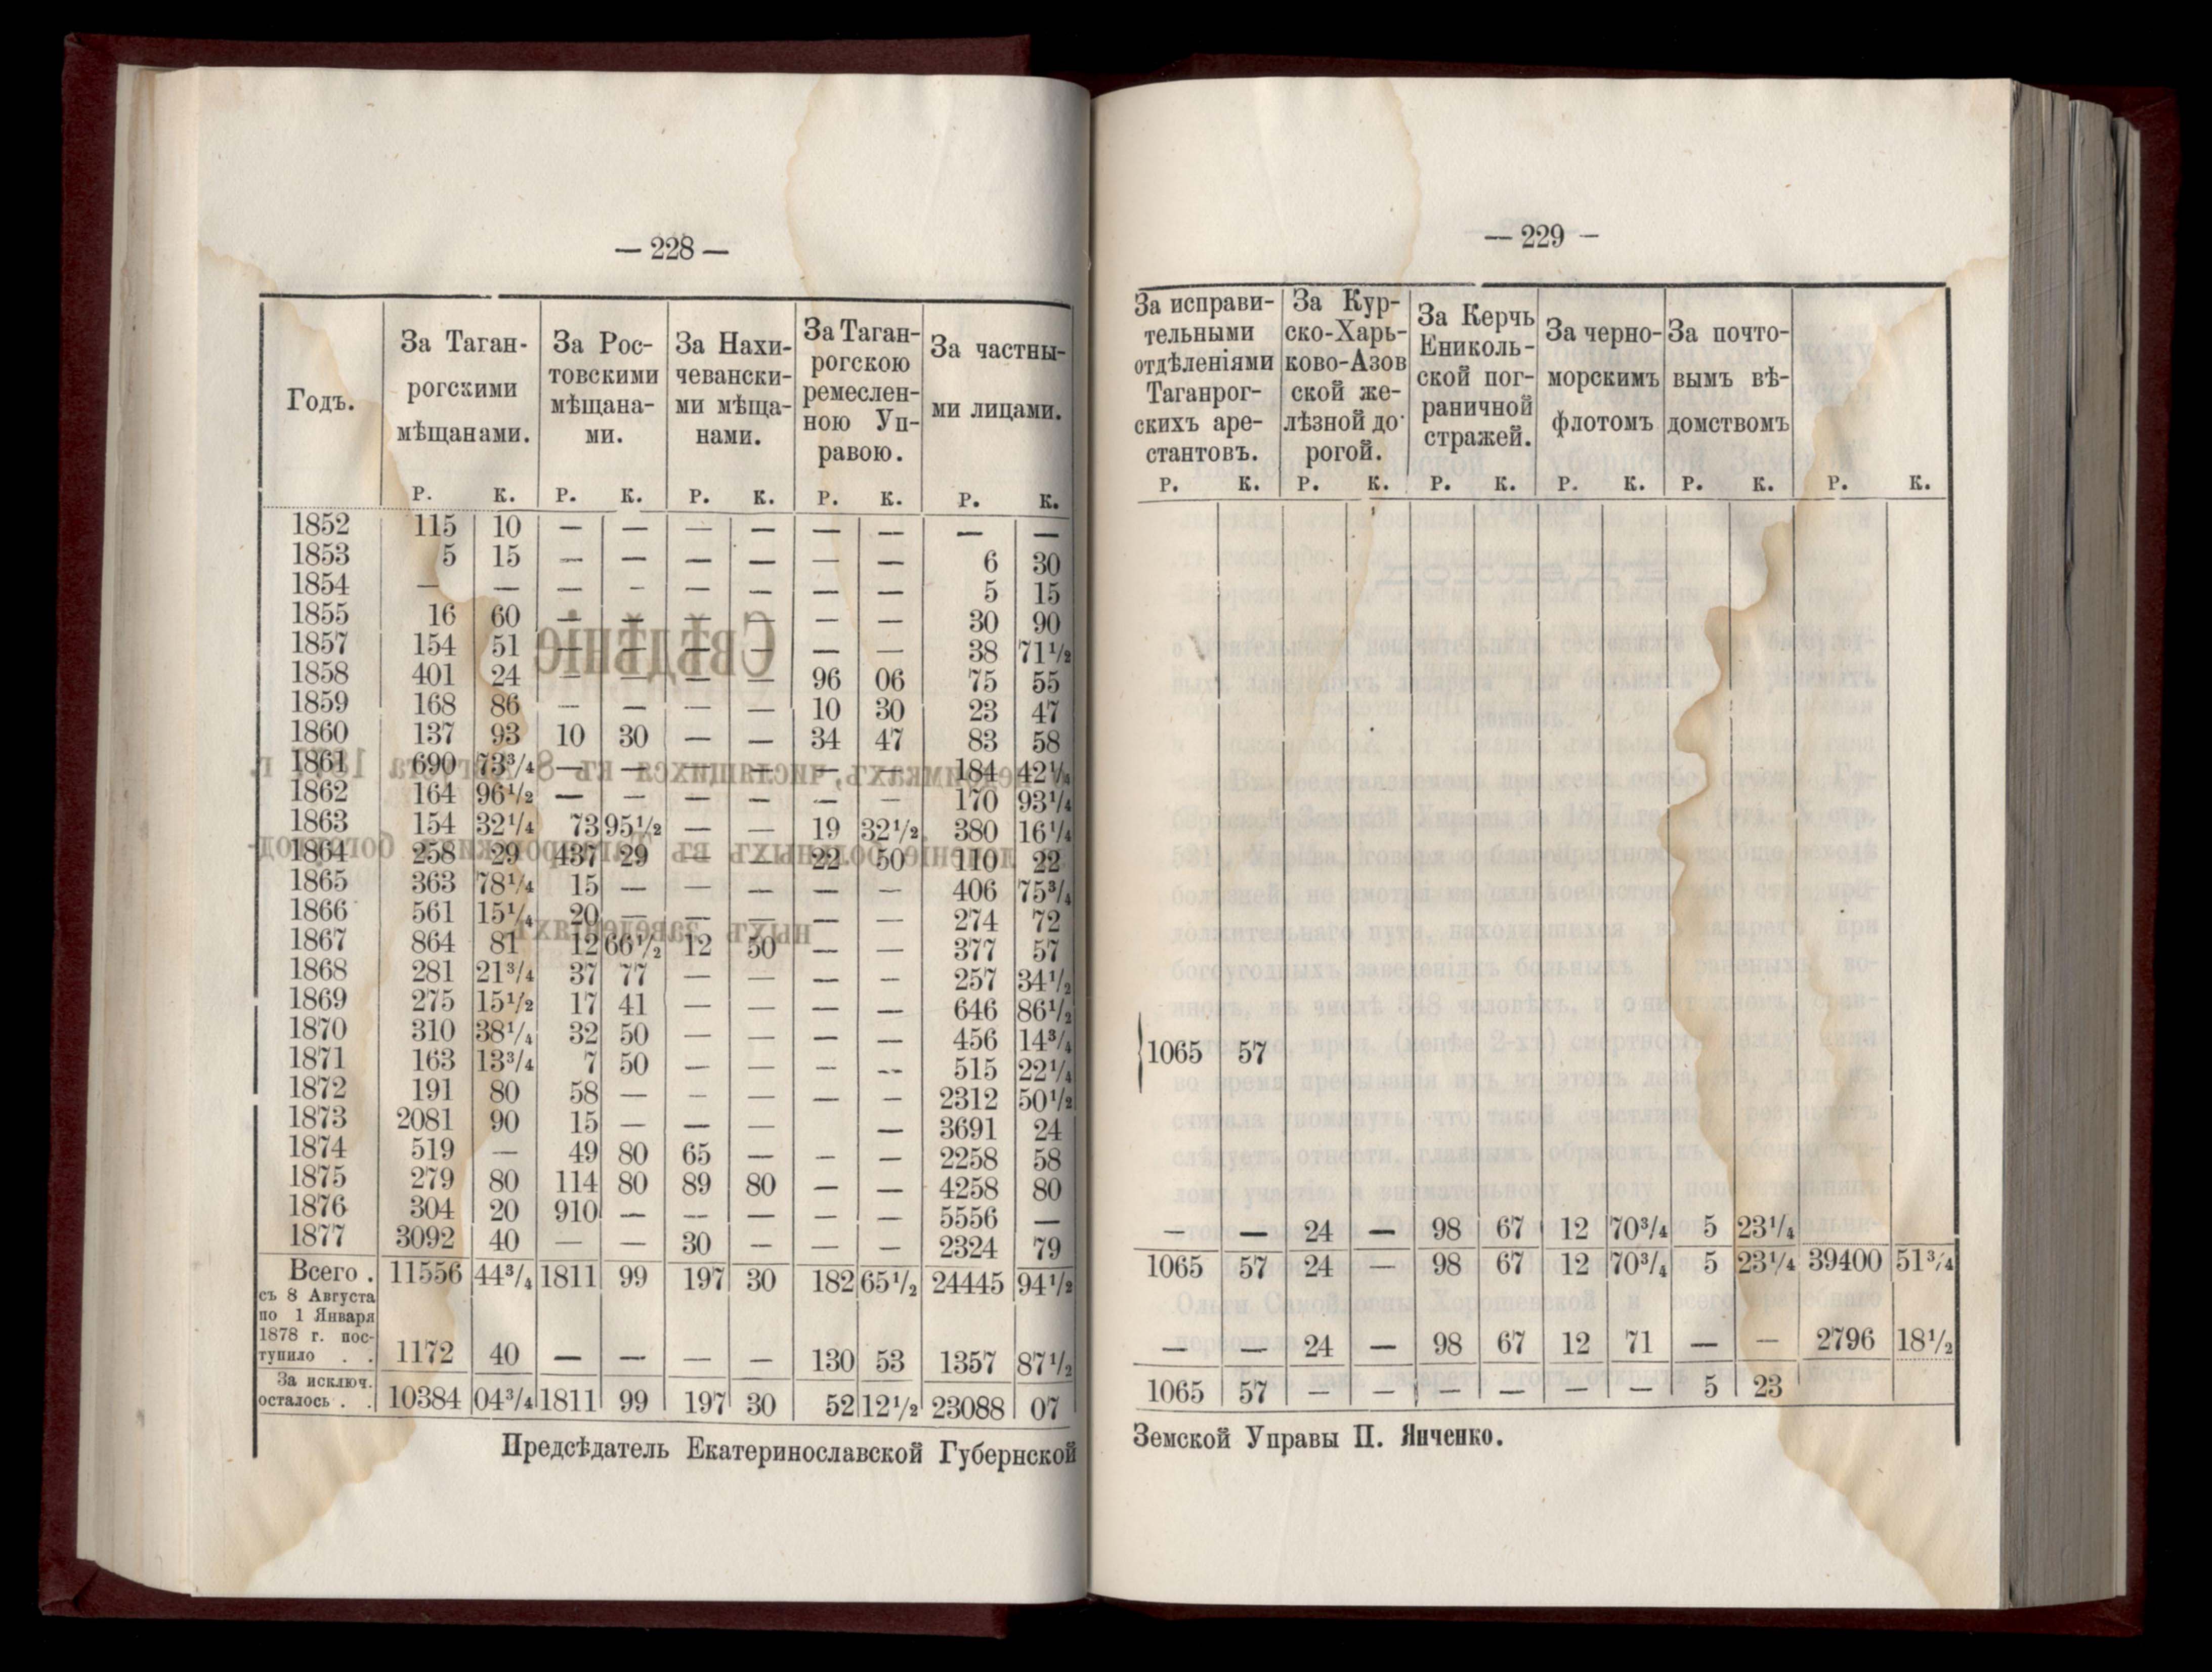 — 228 —
Годъ.
За Таган-
рогскими
мѣщанами.
За Рос-
товскими
мѣщана-
ми.
За Нахи-
чевански-
ми мѣща-
нами.
За Таган-
рогскою
ремеслен-
ною Уп-
равою.
За частны-
ми лицами.
Р. К. Р. К. Р. К. Р. К. Р. К.
1852 115 10 — — — — — — — —
1853 5 15 — — — — — — 6 30
1854 — — — — — — — — 5 15
1855 16 60 — — — — — — 30 90
1857 154 51 — — — — — — 38 71½
1858 401 24 — — — — 96 06 75 55
1859 168 86 — — — — 10 30 23 47
1860 137 93 10 30 — — 34 47 83 58
1861 690 73¾ — — — — — — 184 42¼
1862 164 96½ — — — — — — 170 93¼
1863 154 32¼ 73 95½ — — 19 32½ 380 16¼
1864 258 29 437 29 — — 22 50 110 22
1865 363 78¼ 15 — — — — — 406 75¾
1866 561 15¼ 20 — — — — — 274 72
1867 864 81 12 66½ 12 50 — — 377 57
1868 281 21¾ 37 77 — — — — 257 34½
1869 275 15½ 17 41 — — — — 646 86½
1870 310 38¼ 32 50 — — — — 456 14¾
1871 163 13¾ 7 50 — — — — 515 22¼
1872 191 80 58 — — — — — 2312 50½
1873 2081 90 15 — — — — 3691 24
1874 519 — 49 80 65 — — — 2258 58
1875 279 80 114 80 89 80 — — 4258 80
1876 304 20 910 — — — — — 5556 —
1877 3092 40 — — 30 — — — 2324 79
Всего . 11556 44¾ 1811 99 197 30 182 65½ 24445 94½
съ 8 Августа
по 1 Января
1878 г. пос-
тупило . . 1172 40 — — — — 130 53 1357 87½
За исключ.
осталось . . 10384 04¾ 1811 99 197 30 52 12½ 23088 07
Предсѣдатель Екатеринославской Губернской
— 229 —
За исправи-
тельными
отдѣленіями
Таганрог-
скихъ аре-
стантовъ.
За Кур-
ско-Харь-
ково-Азов
ской же-
лѣзной до-
рогой.
За Керчь
Ениколь-
ской пог-
раничной
стражей.
За черно-
морскимъ
флотомъ
За почто-
вымъ вѣ-
домствомъ
Р. К. Р. К. Р. К. Р. К. Р. К. Р. К.
} 1065 57
— — 24 — 98 67 12 70¾ 5 23¼
1065 57 24 — 98 67 12 70¾ 5 23¼ 39400 51¾
— — 24 — 98 67 12 71 — — 2796 18½
1065 57 — — — — — — 5 23
Земской Управы П. Янченко.